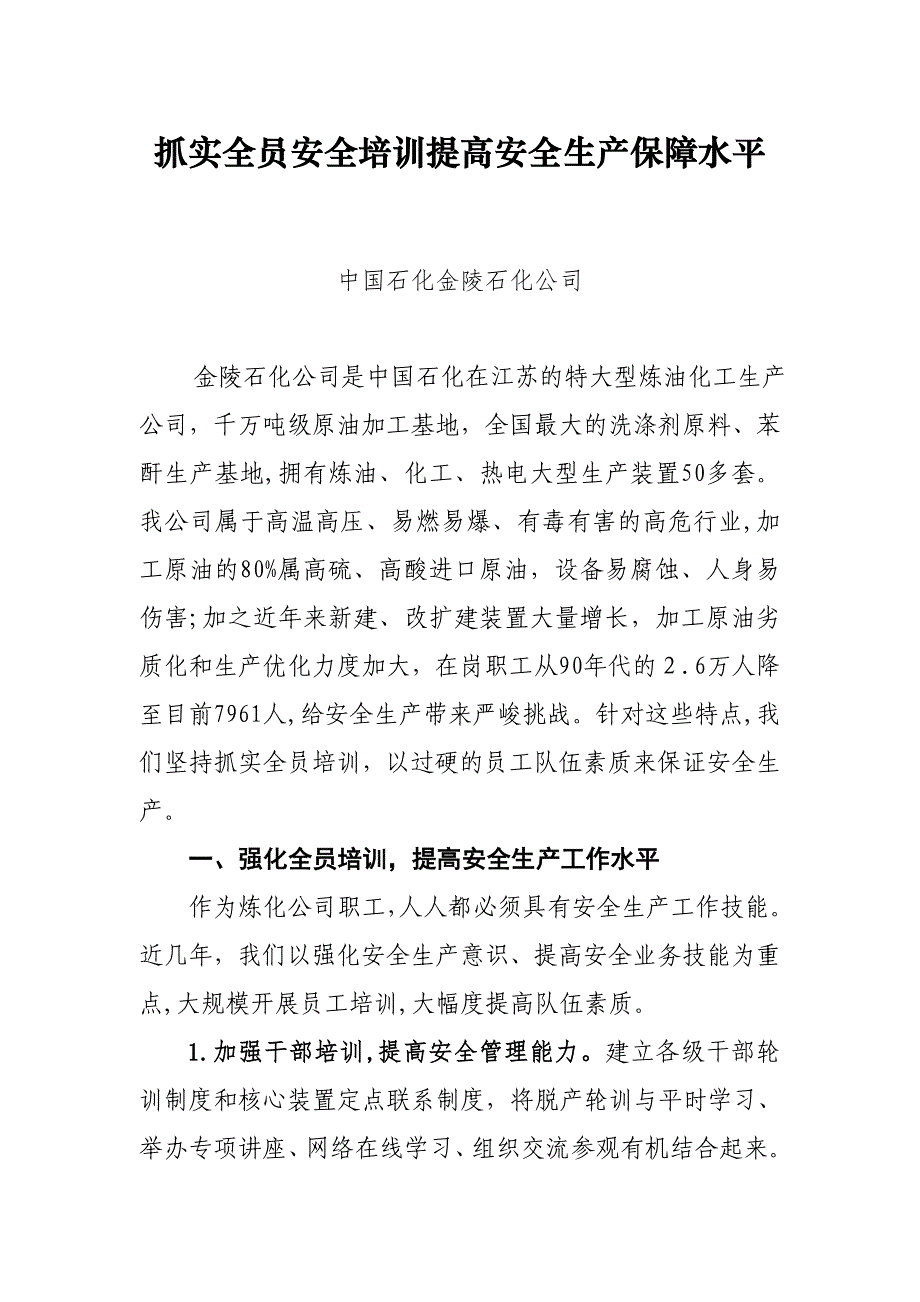 抓实全员安全培训提高安全生产保障水平
中国石化金陵石化公司
金陵石化公司是中国石化在江苏的特大型炼油化工生产
公司，千万吨级原油加工基地，全国最大的洗涤剂原料、苯
酐生产基地,拥有炼油、化工、热电大型生产装置50多套。
我公司属于高温高压、易燃易爆、有毒有害的高危行业,加
工原油的80%属高硫、高酸进口原油，设备易腐蚀、人身易
伤害;加之近年来新建、改扩建装置大量增长，加工原油劣
质化和生产优化力度加大，在岗职工从90年代的 2.6万人降
至目前7961人,给安全生产带来严峻挑战。针对这些特点,我
们坚持抓实全员培训，以过硬的员工队伍素质来保证安全生
产。
一、强化全员培训，提高安全生产工作水平
作为炼化公司职工,人人都必须具有安全生产工作技能。
近几年，我们以强化安全生产意识、提高安全业务技能为重
点,大规模开展员工培训,大幅度提高队伍素质。
1.加强干部培训,提高安全管理能力。建立各级干部轮
训制度和核心装置定点联系制度，将脱产轮训与平时学习、
举办专项讲座、网络在线学习、组织交流参观有机结合起来。